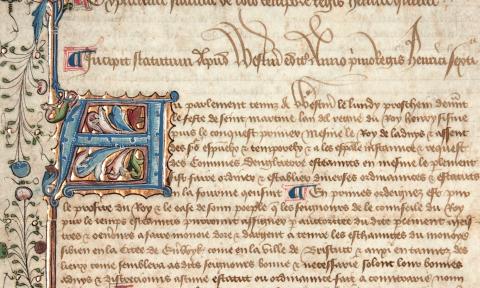 statuta de toto tempore Regis Henrici quinti
Incipit statutum Apud Westm edit Anno primo Regis Henrici Sexti
Au parlement tenuz a Westm le lundy proschein devant
le feste de seint martine lan del regne du Roy henry sisme
puis le conquest primer mesme le Roy de ladvys & assent
des & temporelx & a les especiale instance & request
des Comunes dengleterre esteantz en mesme le plement
ad faire ordiner & establier diverses ordinances & estatutz
en la fourme qensuit En primes ordeignez est pur
le profite du Roy & lease de soun people q les seignours de le counseille du Roy
pur le temps esteantz purront assigner p auctoritee du dite plement
tres & a faire monoie dore & dargent a tener les eschaunges du monoys
sibien en la Citee de come en la Ville de & auxi en tantz des
lieux come semblera as ditz seignours bone & necessarie solonc lour bones
advys & discrecions ascune estatut ou ordinance fait a contrarie